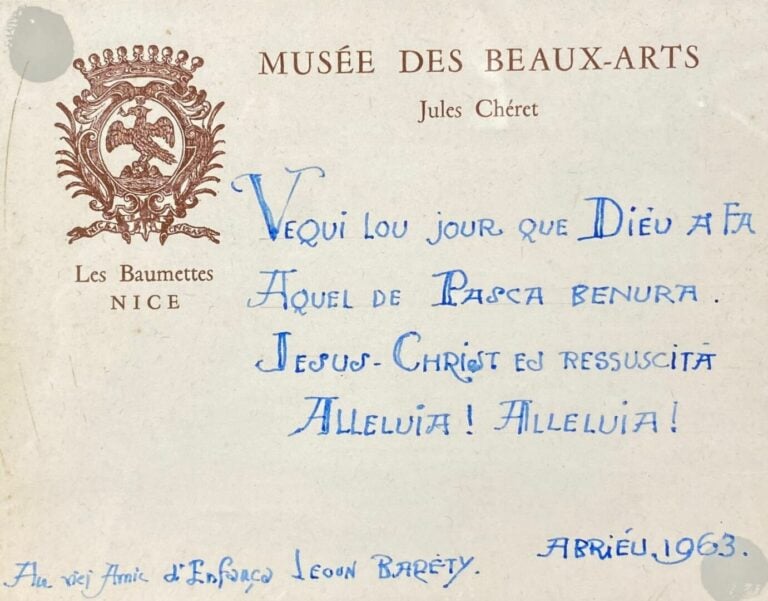 MUSÉE DES BEAUX-ARTS
Jules Chéret
Les Baumettes
NICE
VEQUI LOU JOUR QUE DIÉU A FA
AQUEL DE PASCA BENURA.
JESUS-CHRIST ES RESSUSCITÀ
ALLELUIA! ALLELUIA!
ABRIÉU. 1963.
Au viei Amic d'Enfança LEOUN BARÈTY.